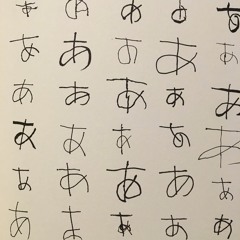 あ あ あ あ あ
あ あ あ あ あ
あ あ あ あ あ
あ あ あ あ あ
あ あ あ あ あ
あ あ あ あ あ